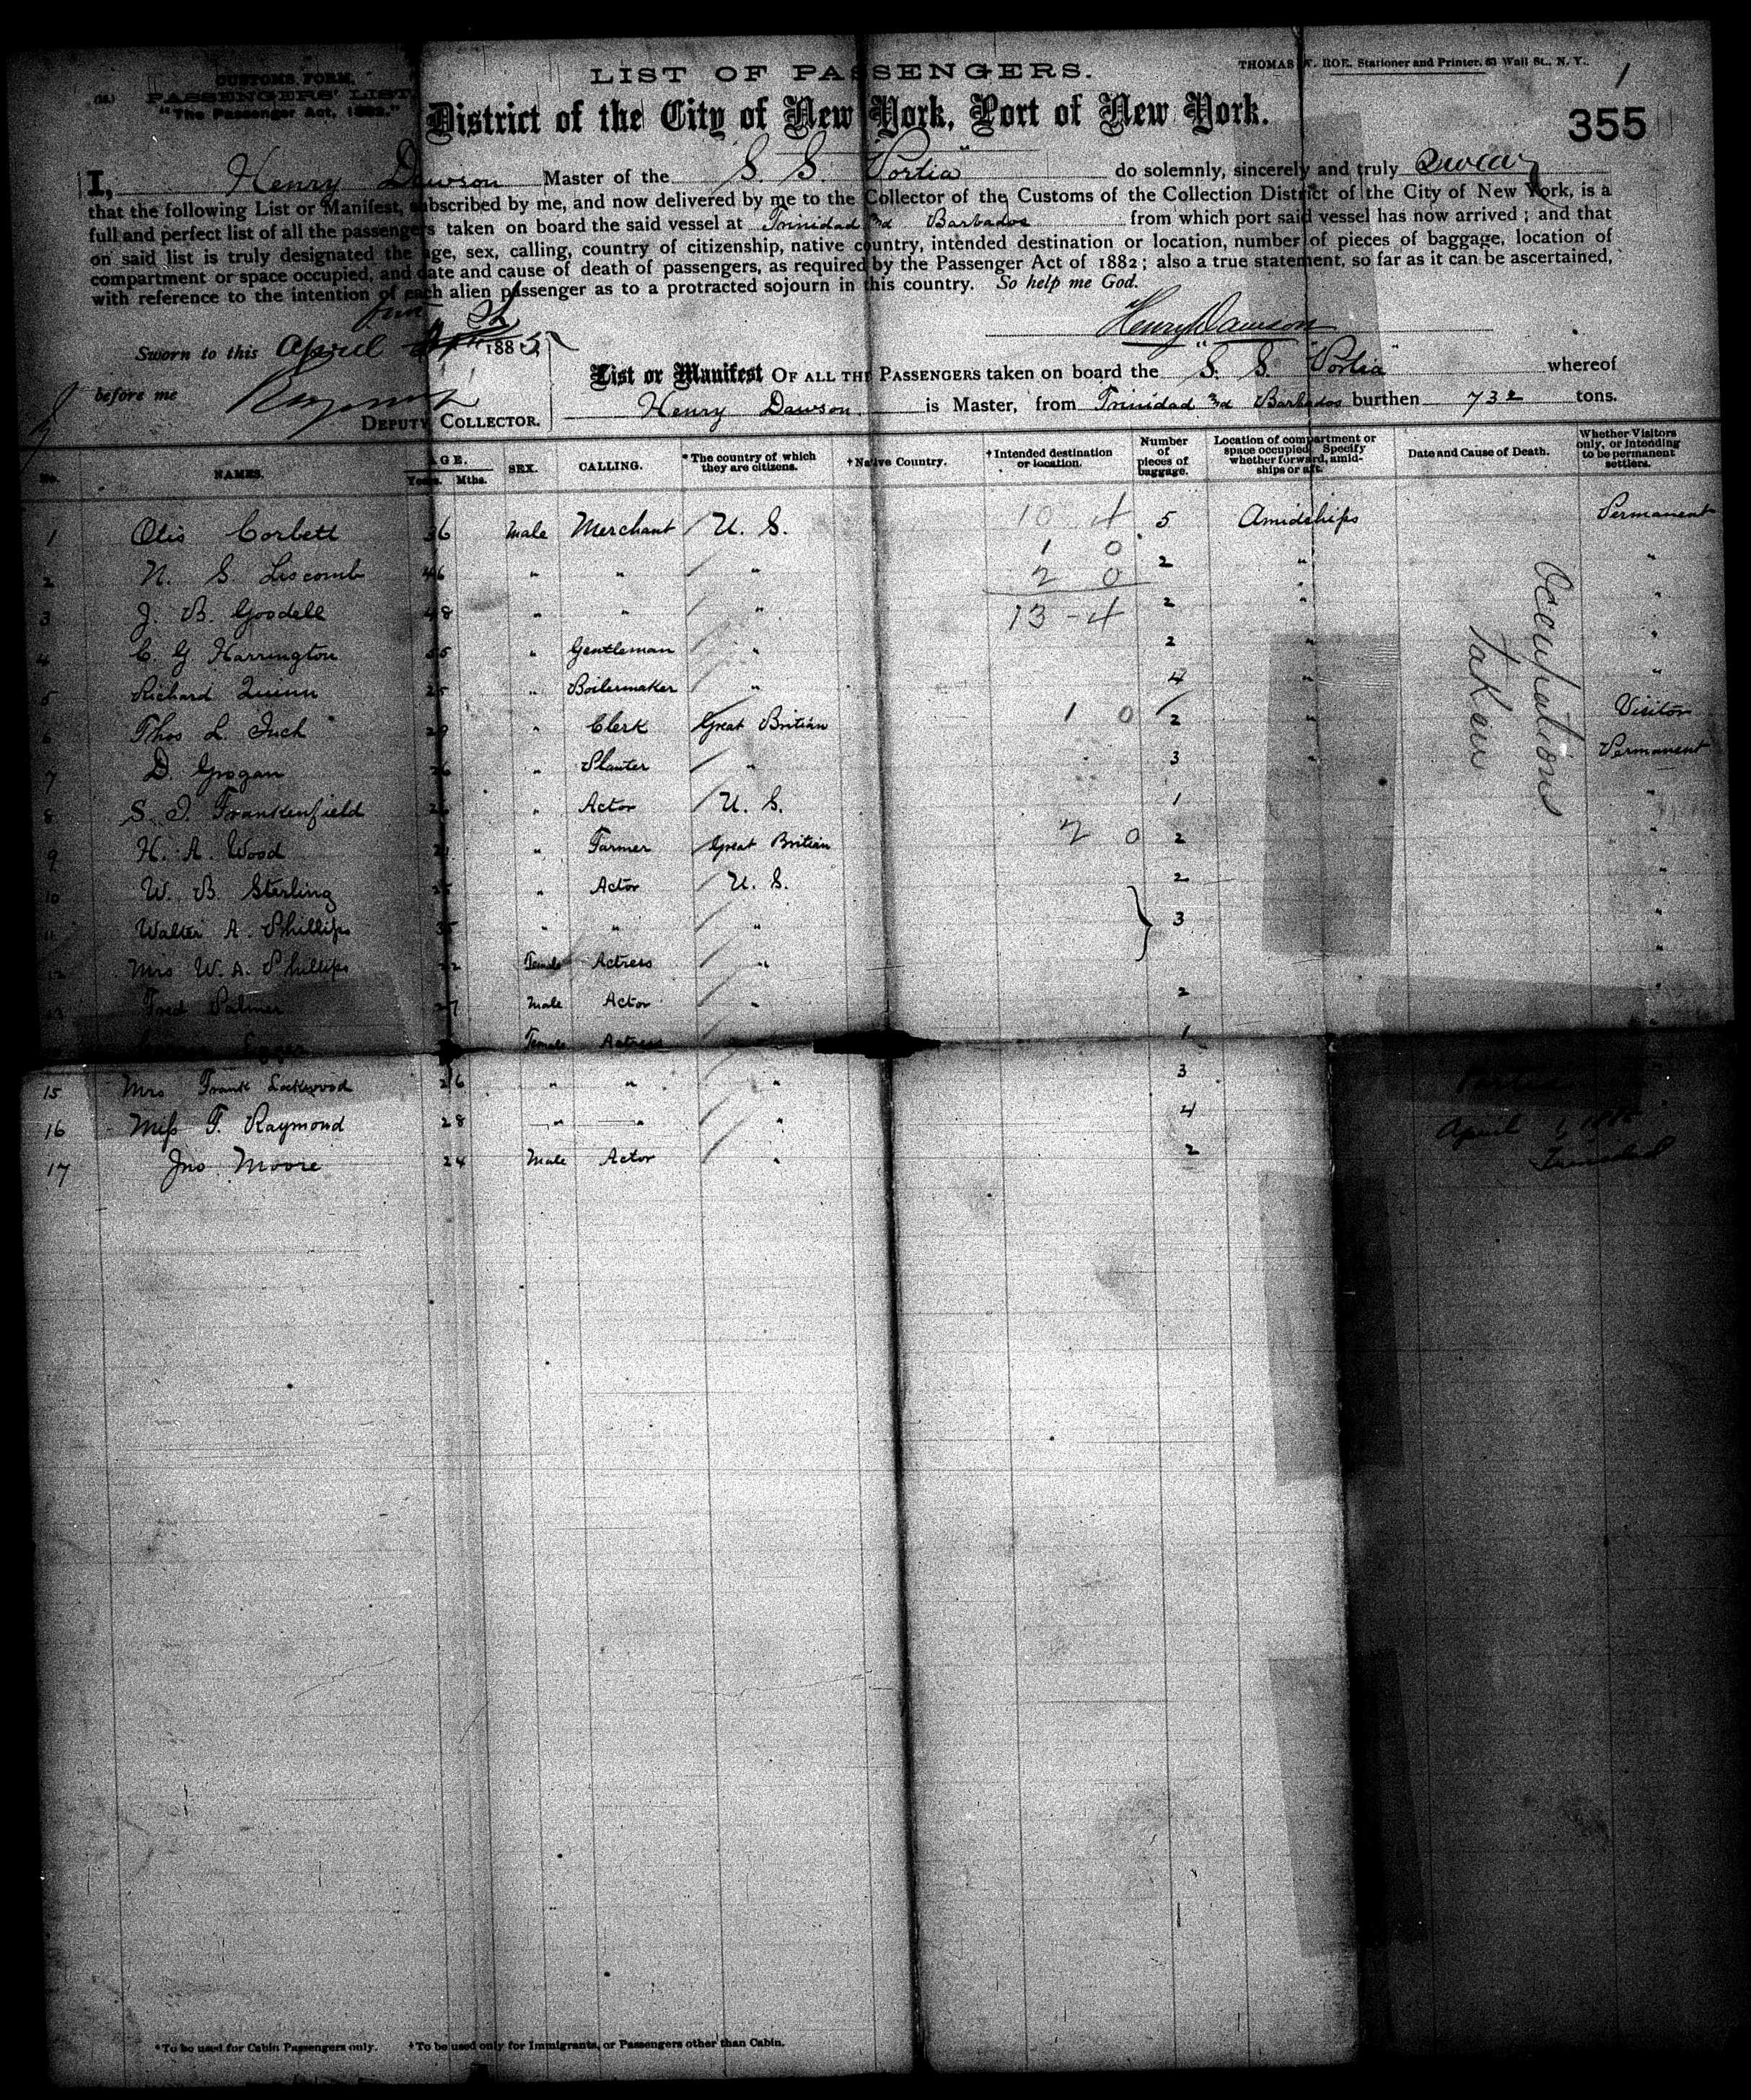 CUSTOMS FORM.
PASSENGERS' LIST
"The Passenger Act, 1882."
LIST OF PASSENGERS.
THOMAS W. ROE, Stationer and Printer, 63 Wall St., N. Y.
1
District of the City of New York, Port of New York.
355
I, Henry Dawson Master of the S. S. "Portia" do solemnly, sincerely and truly swear
that the following List or Manifest, subscribed by me, and now delivered by me to the Collector of the Customs of the Collection District of the City of New York, is a
full and perfect list of all the passengers taken on board the said vessel at Trinidad and Barbados from which port said vessel has now arrived; and that
on said list is truly designated the age, sex, calling, country of citizenship, native country, intended destination or location, number of pieces of baggage, location of
compartment or space occupied, and date and cause of death of passengers, as required by the Passenger Act of 1882; also a true statement, so far as it can be ascertained,
with reference to the intention of each alien passenger as to a protracted sojourn in this country. So help me God.
Henry Dawson
Sworn to this April 1885
before me
DEPUTY COLLECTOR.
List or Manifest OF ALL THE PASSENGERS taken on board the S. S. "Portia" whereof
Henry Dawson is Master, from Trinidad and Barbados burthen 732 tons.
No. NAMES. AGE. Years. Mths. SEX. CALLING. *The country of which they are citizens. †Native Country. †Intended destination or location. Number of pieces of baggage. Location of compartment or space occupied. Specify whether forward, amidships or aft. Date and Cause of Death. Whether Visitors only, or intending to be permanent settlers.
1 Otis Corbett 36 Male Merchant U. S. 10 4 5 Amidships Permanent
1 0
2 N. S Liscomb 46 " " " 2 " "
2 0
3 J. B. Goodell 48 " " " 13 - 4 2 " "
4 C. G Harrington " Gentleman " 2 " "
5 Richard Quinn 25 " Boilermaker " 4 " "
6 Thos L. Inch 29 " Clerk Great Britian 1 0 2 " Visitor
7 D. Grogan " Planter " 3 " Permanent
8 S. I. Frankenfield " Actor U. S. 1 "
9 H. A. Wood " Farmer Great Britian 2 0 2 "
10 W. B. Sterling " Actor U. S. 2 "
11 Walter A. Phillips 35 " " " 3 "
12 Mrs W. A. Phillips Female Actress " "
13 Fred Palmer 27 Male Actor " 2 "
Female Actress 1 "
15 Mrs Frank Lockwood 26 " " " 3 "
16 Miss F. Raymond 28 " " " 4 "
17 Jno Moore 24 Male Actor " 2
Occupations
Taken
Portia
April
Trinidad
*To be used for Cabin Passengers only. †To be used only for Immigrants, or Passengers other than Cabin.